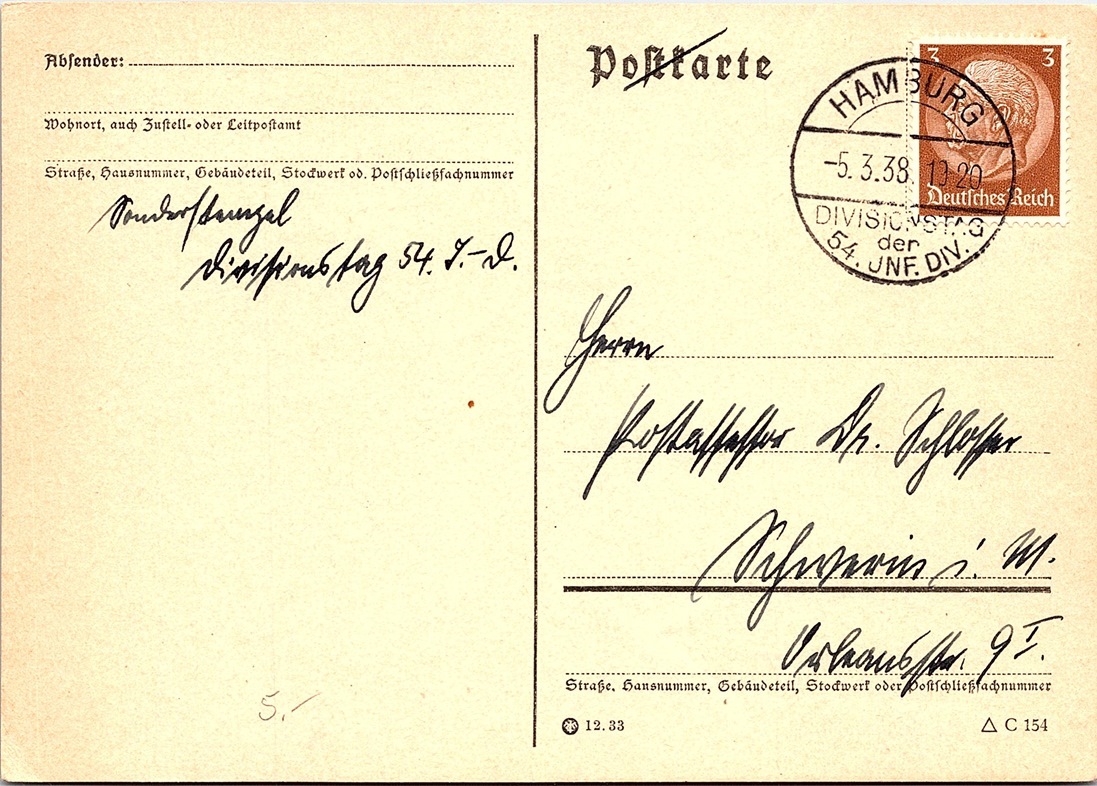 Absender:
Wohnort, auch Zustell- oder Leitpostamt
Straße, Hausnummer, Gebäudeteil, Stockwerk od. Postschließfachnummer
Sonderstempel
Divisionstag 54. I.-D.
5.-
Postkarte
3 3
Deutsches Reich
HAMBURG
-5.3.38. 19-20
DIVISIONSTAG
der
54. JNF. DIV.
Herrn
Postassessor Dr. Schlosser
Schwerin i. M.
Orleansstr. 9 I.
Straße, Hausnummer, Gebäudeteil, Stockwerk oder Postschließfachnummer
12.33
C 154